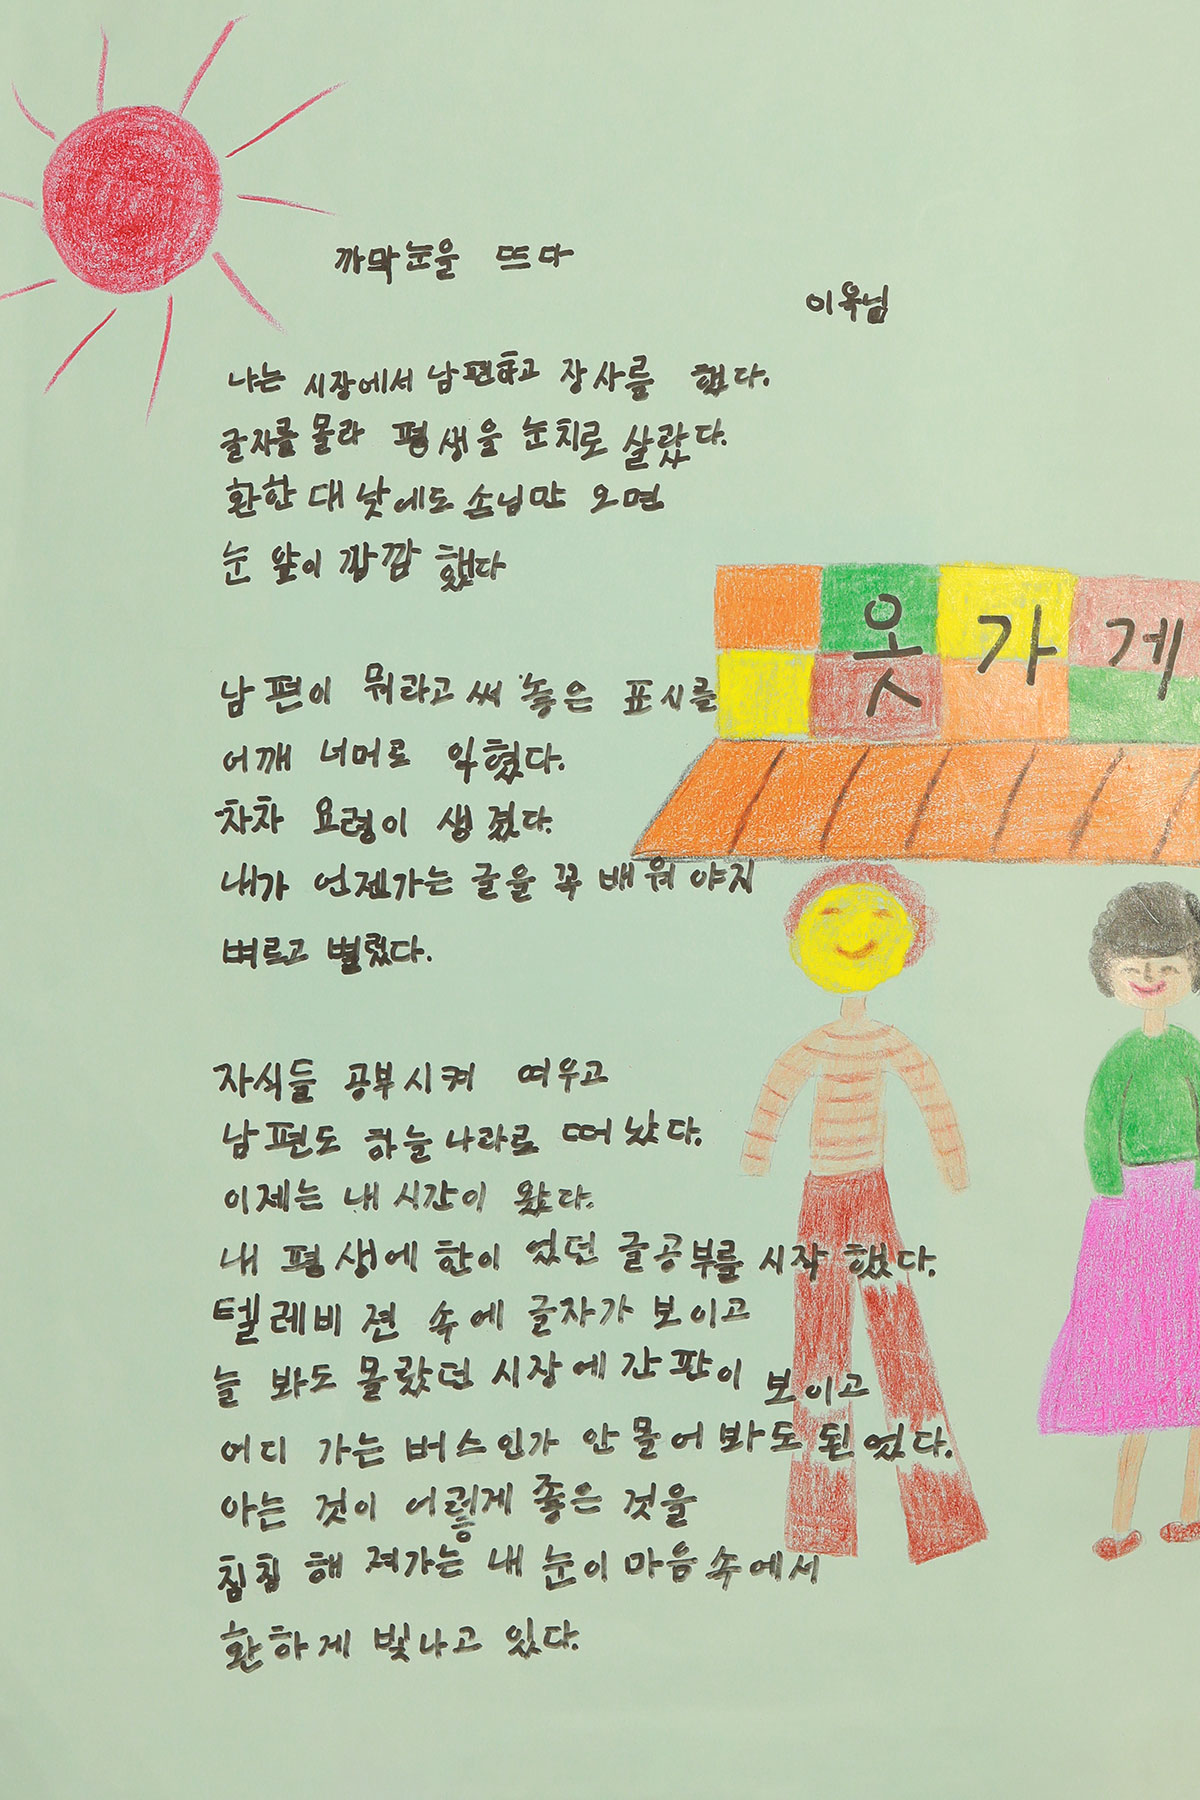 까막눈을 뜨다
이옥님
나는 시장에서 남편하고 장사를 했다.
글자를 몰라 평생을 눈치로 살랐다.
환한 대낮에도 손님만 오면
눈 앞이 깜깜 했다
옷가게
남편이 뭐라고 써 놓은 표시를
어깨 너머로 익혔다.
차차 요령이 생겼다.
내가 언젠가는 글을 꼭 배워야지
벼르고 별렀다.
자식들 공부시켜 여우고
남편도 하늘나라로 떠났다.
이제는 내 시간이 왔다.
내 평생에 한이 었던 글공부를 시작 했다.
텔레비젼 속에 글자가 보이고
늘 봐도 몰랐던 시장에 간판이 보이고
어디 가는 버스인가 안 물어 봐도 된었다.
아는 것이 이렇게 좋은 것을
침침 해 져가는 내 눈이 마음속에서
환하게 빛나고 있다.